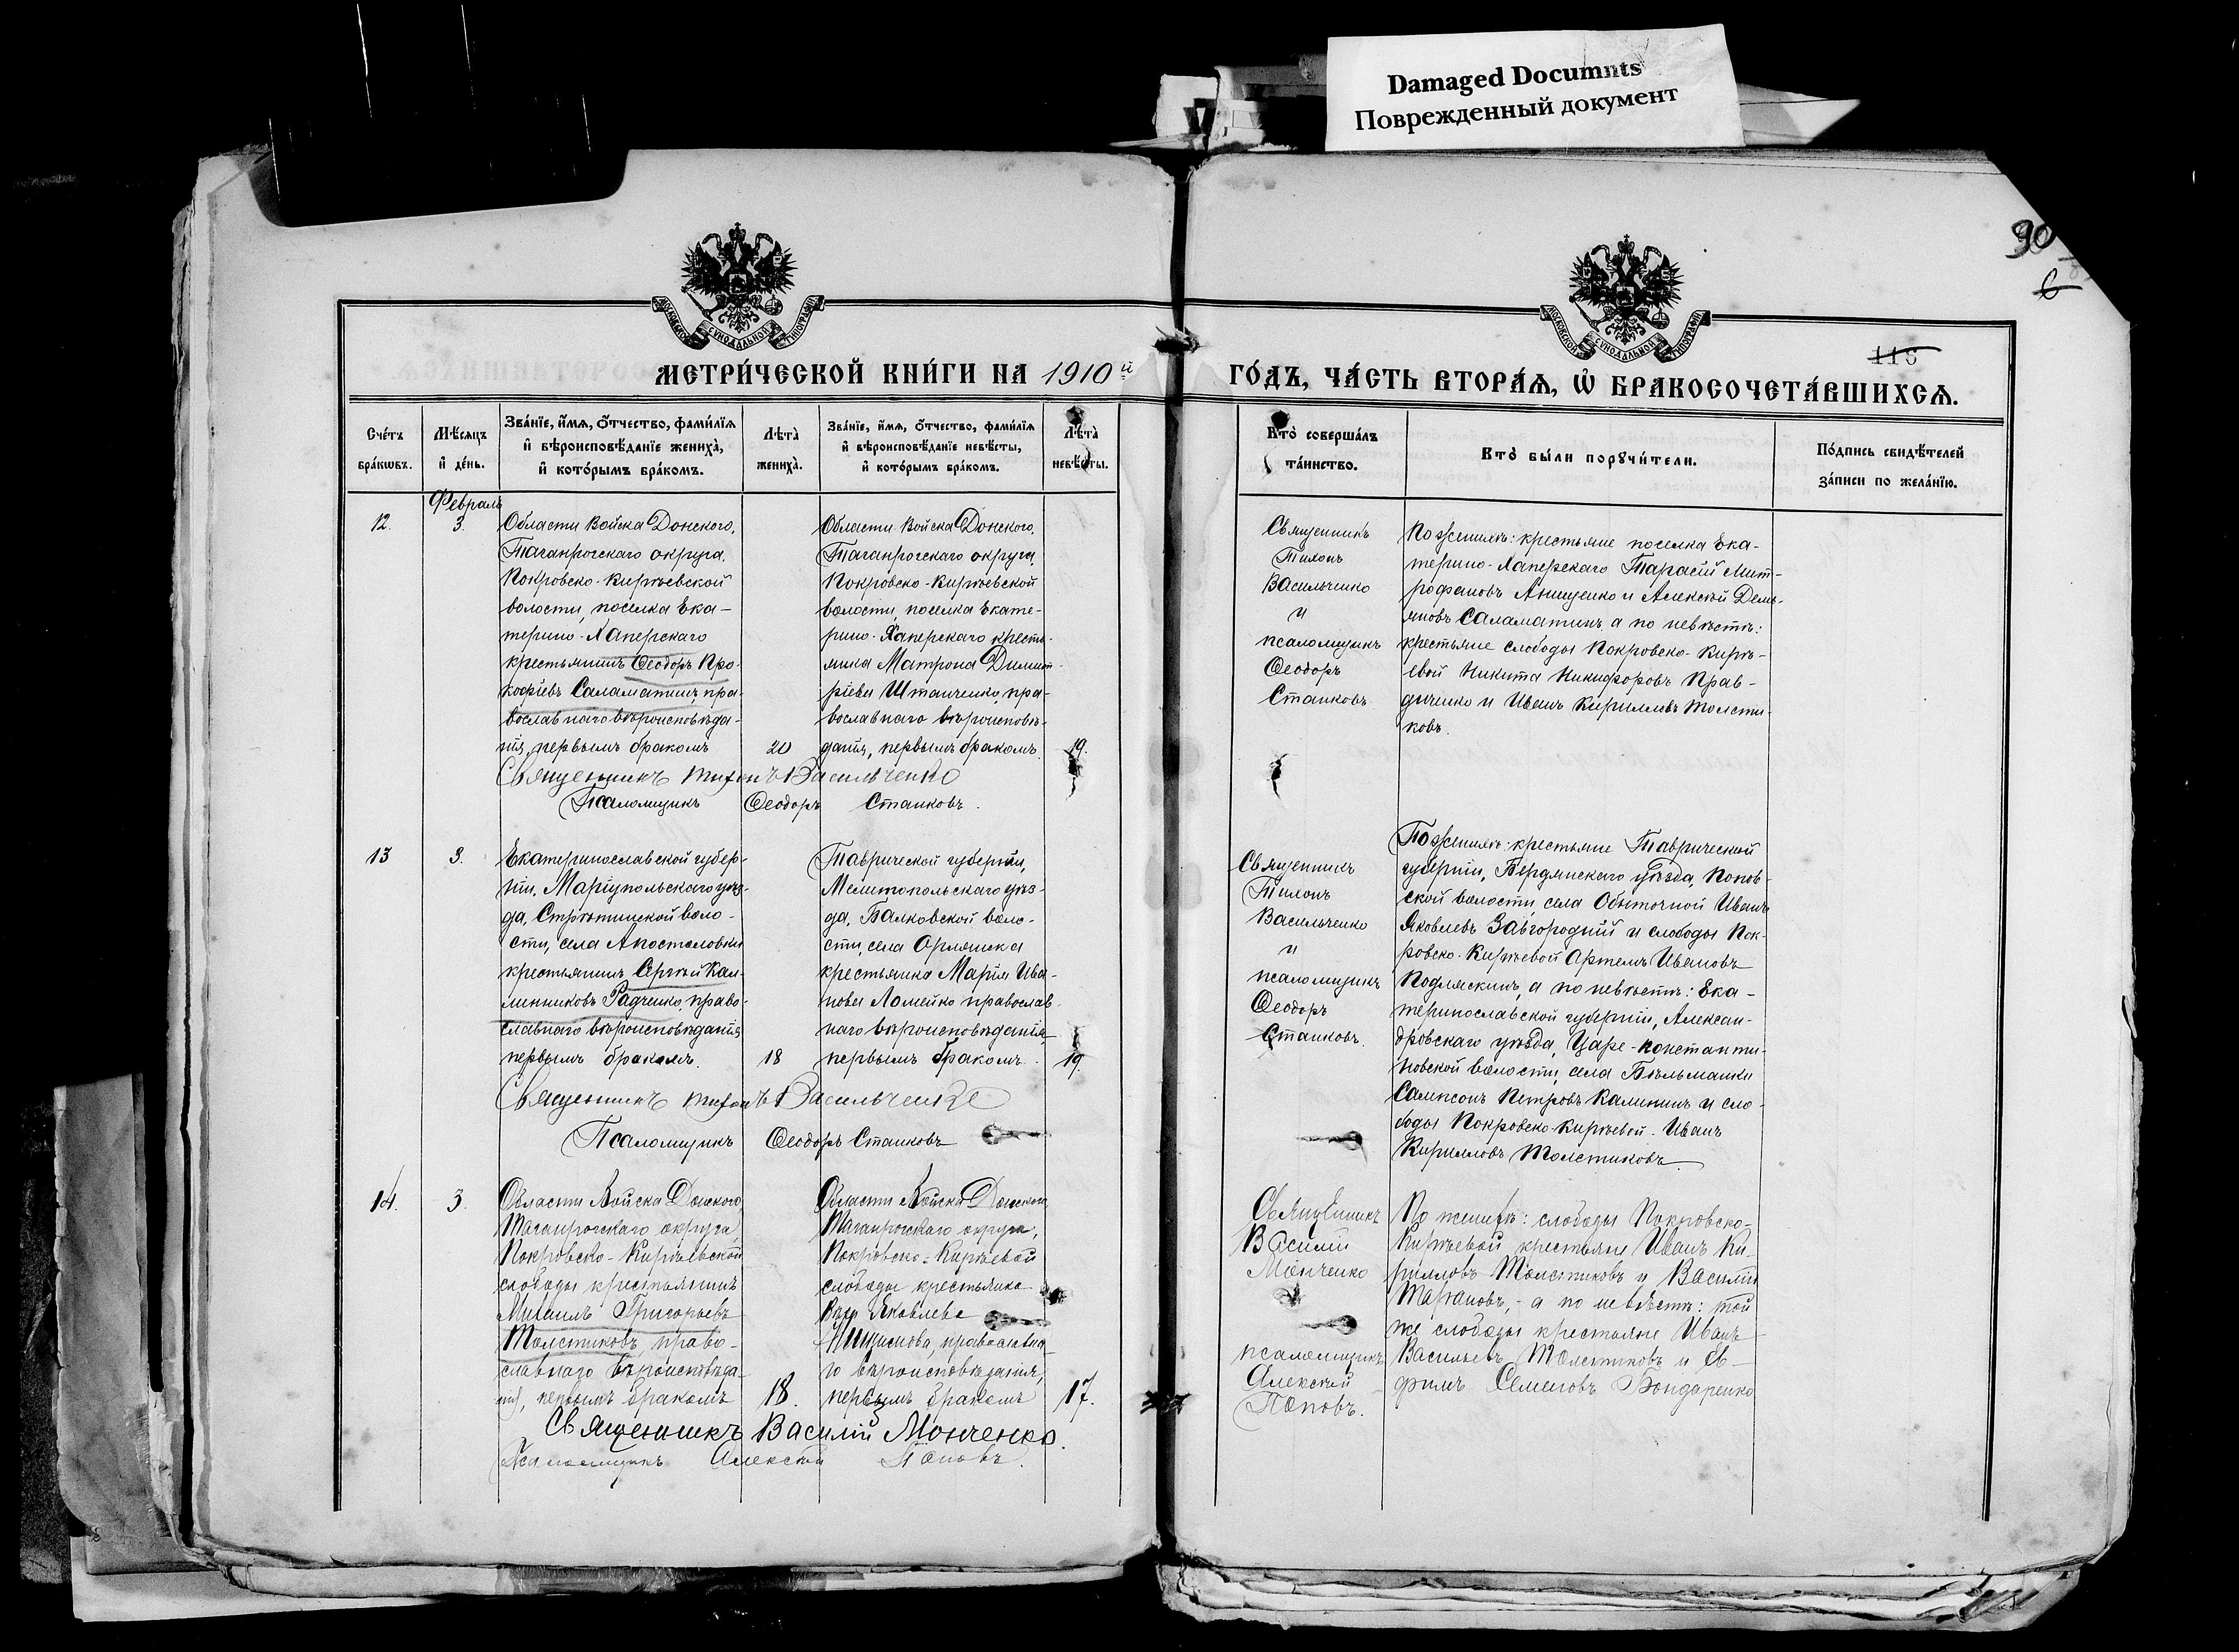 Damaged Documnts
Поврежденный документ
90
6
115
МОСКОВСКОЙ СѴНОДАЛЬНОЙ ТИПОГРАФІИ
МОСКОВСКОЙ СѴНОДАЛЬНОЙ ТИПОГРАФІИ
МЕТРИ́ЧЕСКОЙ КНИ́ГИ НА 1910й
ГО́ДЪ, ЧА́СТЬ ВТОРА́Ѧ, Ѽ БРАКОСОЧЕТА́ВШИХСѦ.
Сче́тъ бра́кѡвъ.
Мѣ́сѧцъ и҆ де́нь.
Зва́нїе, и҆́мѧ, ѻ҆́тчество, фами́лїѧ
и҆ вѣроисповѣ́данїе жениха̀,
и҆ кото́рымъ бра́комъ.
Лѣта̀ жениха̀.
Зва́нїе, и҆́мѧ, ѻ҆́тчество, фами́лїѧ
и҆ вѣроисповѣ́данїе невѣ́сты,
и҆ кото́рымъ бра́комъ.
Лѣта̀ невѣ́сты.
Кто̀ соверша́лъ
та́инство.
Кто̀ бы́ли порꙋчи́тели.
По́дпись свидѣ́телей
за́писи по жела́нїю.
Февраль
12.
3.
Области Войска Донского,
Таганрогскаго округа,
Покровско-Кирѣевской
волости, поселка Ека-
терино-Хаперскаго
крестьянинъ Ѳеодоръ Про-
кофіевъ Саламатинъ, пра-
вославнаго вѣроисповѣда-
нія, первымъ бракомъ
20
Области Войска Донского,
Таганрогскаго округа,
Покровско-Кирѣевской
волости, поселка Екате-
рино-Хаперскаго кресть-
янка Матрона Димит-
ріева Штанченко, пра-
вославнаго вѣроисповѣ-
данія, первымъ бракомъ.
19.
Священникъ Тихонъ Васильченко
Псаломщикъ Ѳеодоръ Станковъ.
Священникъ
Тихонъ
Васильченко
и
псаломщикъ
Ѳеодоръ
Станковъ
По женихѣ: крестьяне поселка Ека-
терино-Хаперскаго Тарасій Мит-
рофановъ Анищенко и Алексѣй Демь-
яновъ Саламатинъ, а по невѣстѣ:
крестьяне слободы Покровско-Кирѣ-
евой Никита Никифоровъ Прав-
дченко и Иванъ Кирилловъ Толсти-
ковъ.
13
3.
Екатеринославской губер-
ніи, Маріупольскаго уѣз-
да, Стрѣтинской воло-
сти, села Апостоловки
крестьянинъ Сергѣй Кал-
линниковъ Радченко, право-
славнаго вѣроисповѣданія
первымъ бракомъ.
18
Таврической губерніи,
Мелитопольскаго уѣз-
да, Балковской воло-
сти, села Орлянска
крестьянка Марія Ива-
нова Ломейко православ-
наго вѣроисповѣданія
первымъ бракомъ.
19.
Священникъ Тихонъ Васильченко
Псаломщикъ Ѳеодоръ Станковъ
Священникъ
Тихонъ
Васильченко
и
псаломщикъ
Ѳеодоръ
Станковъ.
По женихѣ: крестьяне Таврической
губерніи, Бердянскаго уѣзда, Попов-
ской волости, села Обиточной Иванъ
Яковлевъ Завгородній и слободы Пок-
ровско-Кирѣевой Артемъ Ивановъ
Подлѧскинъ, а по невѣстѣ: Ека-
теринославской губерніи, Алексан-
дровскаго уѣзда, Царе-Константи-
новской волости, села Бѣльманки
Сампсонъ Петровъ Калининъ и сло-
боды Покровско-Кирѣевой Иванъ
Кирилловъ Толстиковъ.
14.
3.
Области Войска Донского,
Таганрогскаго округа,
Покровско-Кирѣевской
слободы крестьянинъ
Михаилъ Григорьевъ
Толстиковъ, право-
славнаго вѣроисповѣда-
нія, первымъ бракомъ
18.
Области Войска Донского,
Таганрогскаго округа,
Покровско-Кирѣевой
слободы крестьянка
Яковлева
православна-
го вѣроисповѣданія,
первымъ бракомъ
17.
Священникъ Василій Монченко.
Псаломщикъ Алексѣй Поповъ.
Священникъ
Василій
Монченко
псаломщикъ
Алексѣй
Поповъ.
По женихѣ: слободы Покровско-
Кирѣевой крестьяне Иванъ Ки-
рилловъ Толстиковъ и Василій
Тарановъ, - а по невѣстѣ: той
же слободы крестьяне Иванъ
Васильевъ Толстиковъ и Еѳ-
фимъ Семеновъ Бондаренко